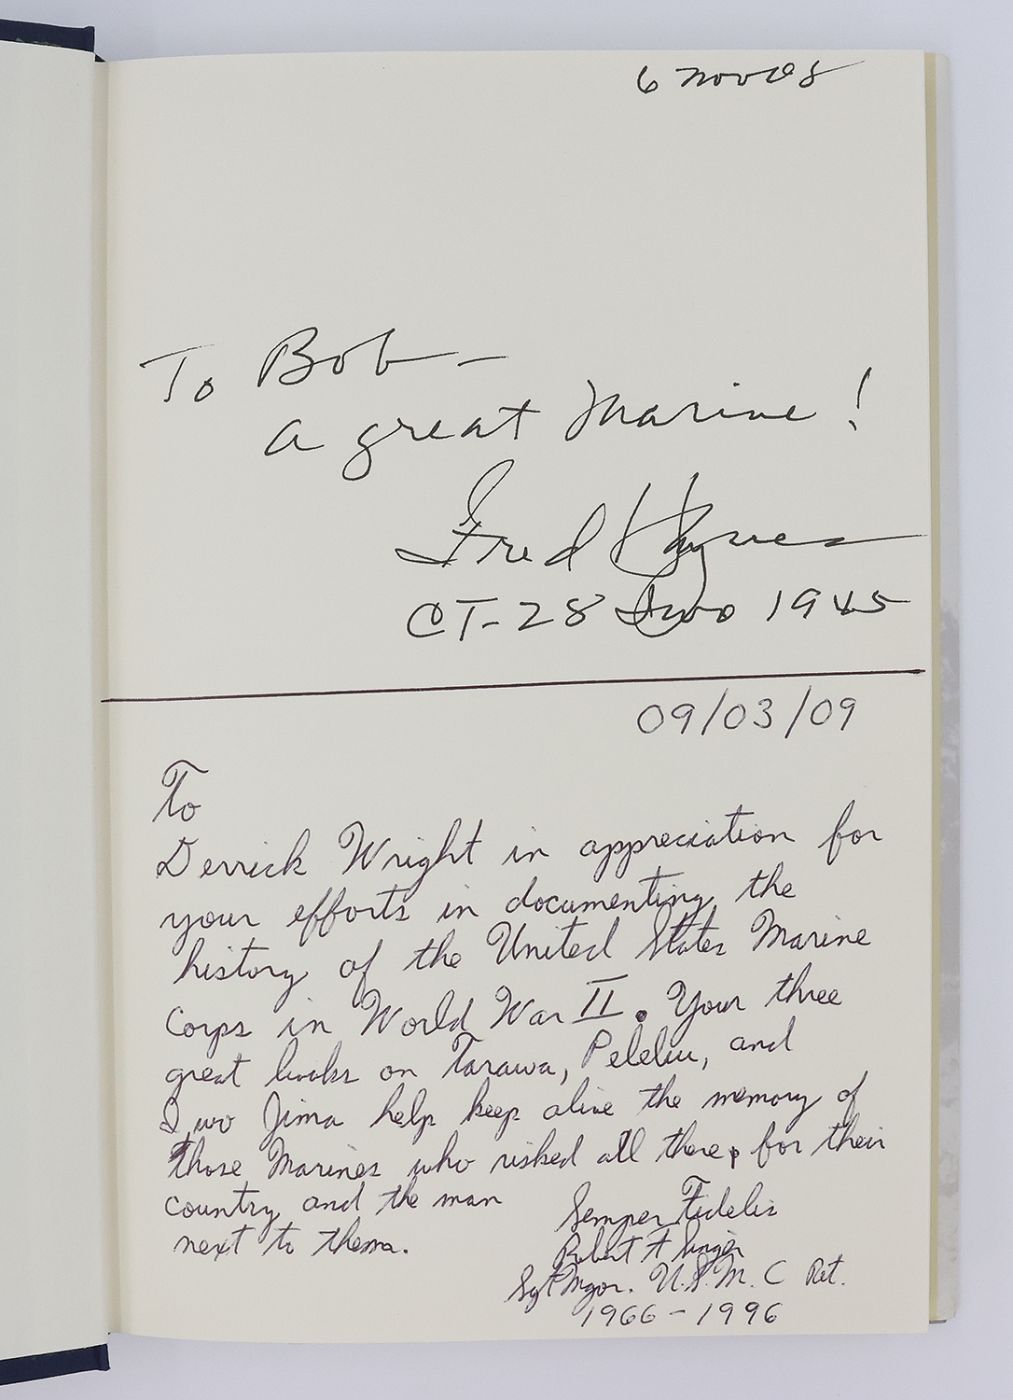 6 Nov 08
To Bob —
a great Marine!
Fred Haynes
CT-28 Iwo 1945
09/03/09
To
Derrick Wright in appreciation for
your efforts in documenting the
history of the United States Marine
Corps in World War II. Your three
great books on Tarawa, Peleliu, and
Iwo Jima help keep alive the memory of
those Marines who risked all there, for their
country and the man
next to them.
Semper Fidelis
Robert F
Sgt Mgor. U.S.M.C Ret.
1966-1996